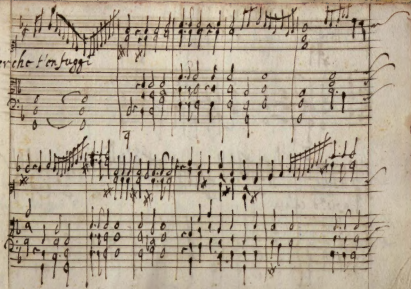 erche t'en fuggi